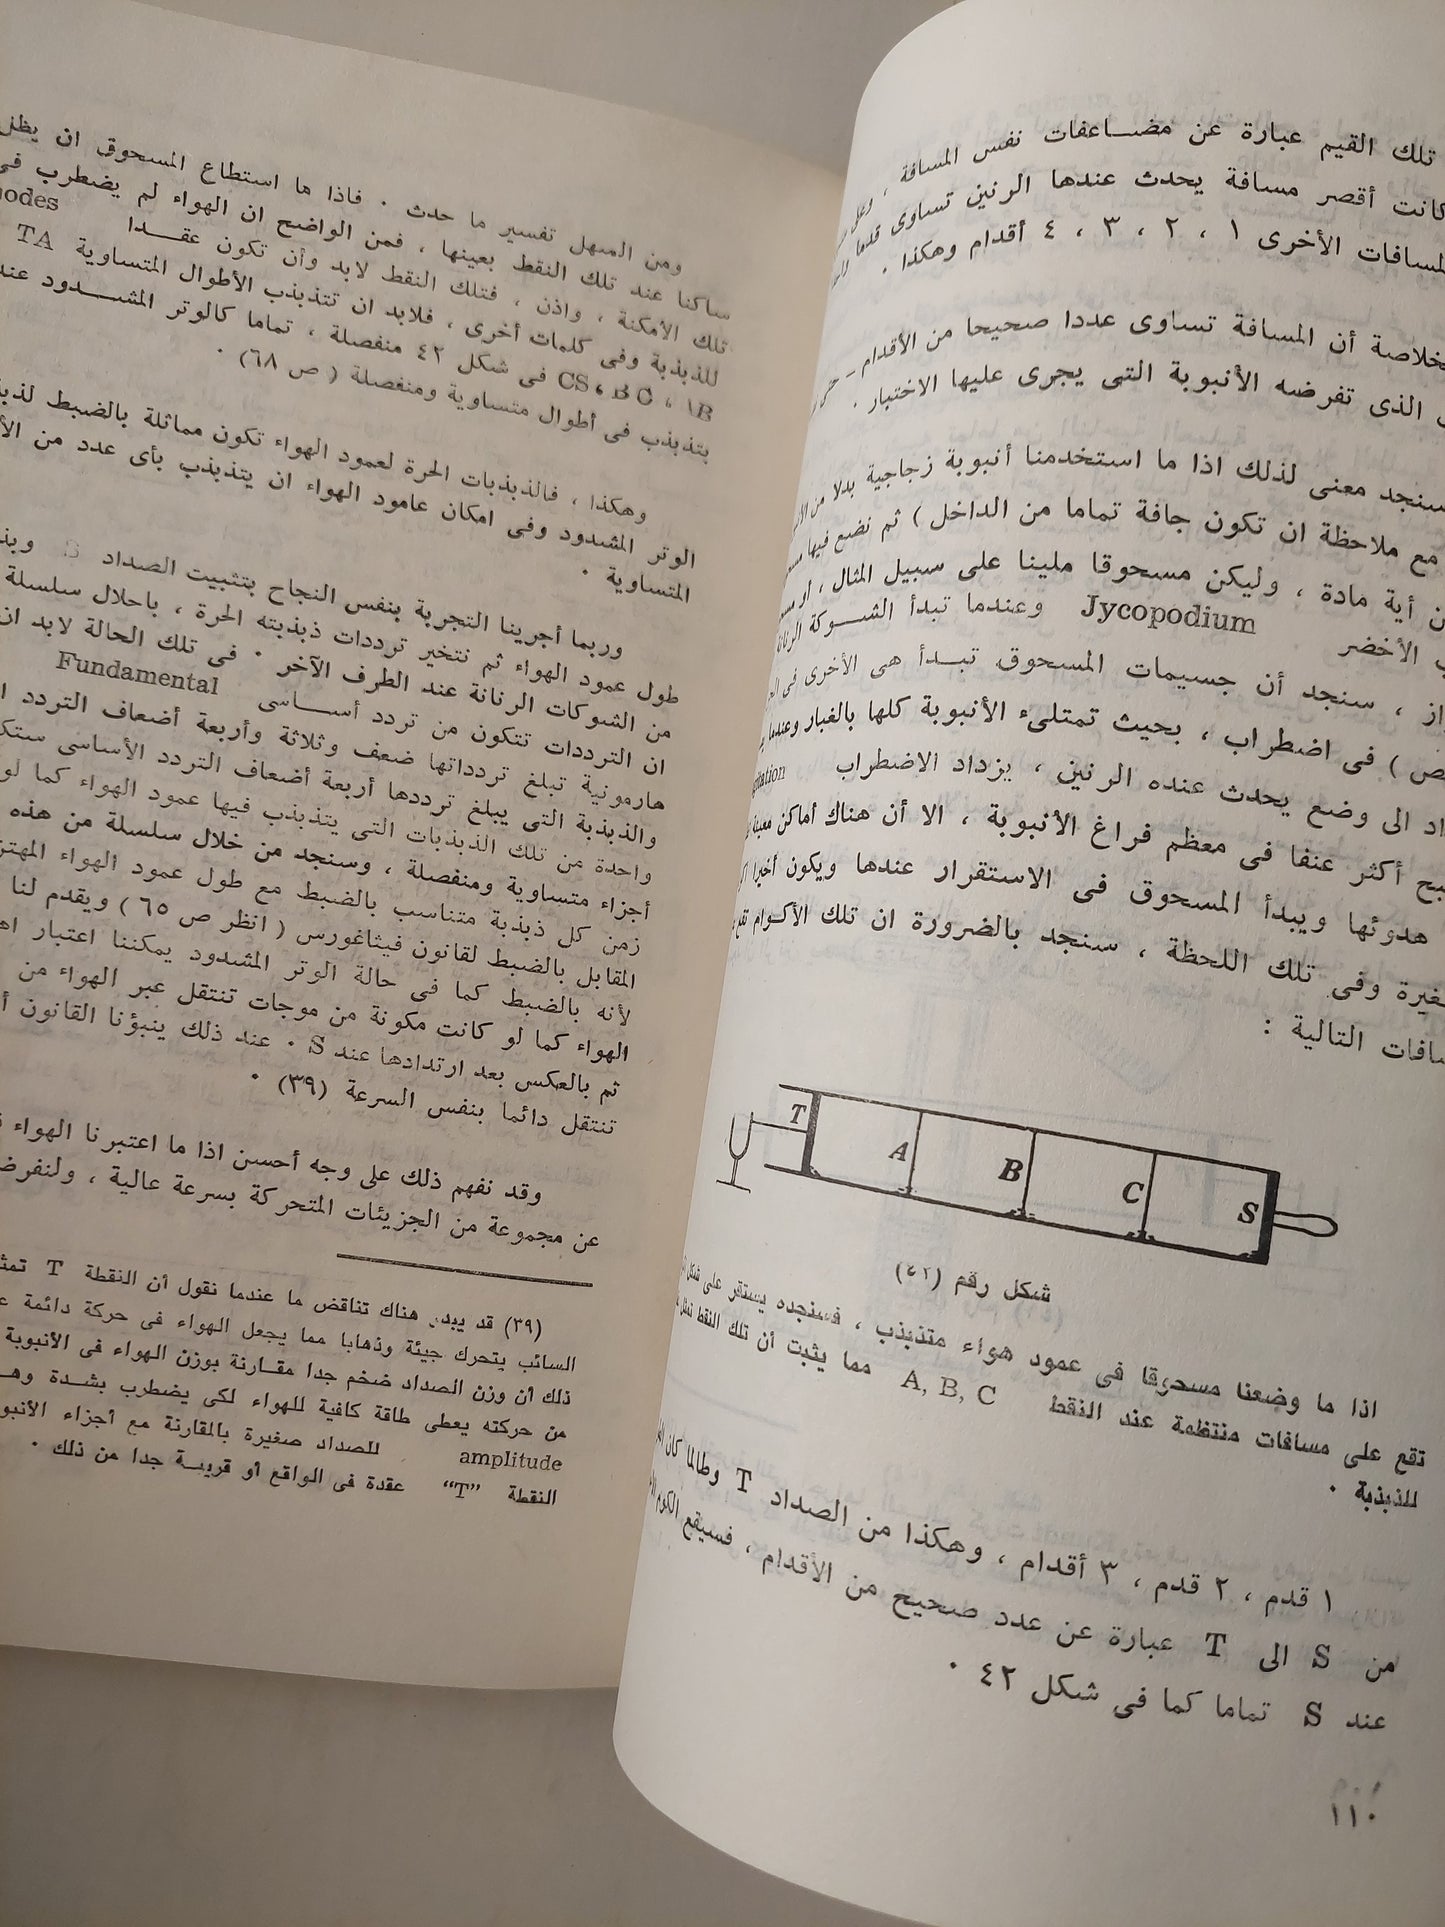 تلك القيم عبارة عن مضاعفات نفس المسافة ،
كانت أقصر مسافة يحدث عندها الرنين تساوى قدما
المسافات الأخرى ١ ، ٢ ، ٣ ، ٤ أقدام وهكذا ٠
أن المسافة تساوى عددا صحيحا من الأقدام –
الذى تفرضه الأنبوبة التى يجرى عليها الاختبار ٠
سنجد معنى لذلك اذا ما استخدمنا أنبوبة زجاجية بدلا من
مع ملاحظة ان تكون جافة تماما من الداخل ) ثم نضع فيها
أية مادة ، وليكن مسحوقا ملينا على سبيل المثال ، او
الأخضر Jycopodium وعندما تبدأ الشوكة الرنانة
، سنجد أن جسيمات المسحوق تبدأ هى الأخرى فى
) فى اضطراب ، بحيث تمتلىء الأنبوبة كلها بالغبار وعندما
الى وضع يحدث عنده الرنين ، يزداد الاضطراب
أكثر عنفا فى معظم فراغ الأنبوبة ، الا أن هناك أماكن معينة
هدوئها ويبدأ المسحوق فى الاستقرار عندها ويكون أخيرا
وفى تلك اللحظة ، سنجد بالضرورة ان تلك الأكوام تقع
التالية :
T A B C S
شكل رقم (٤٢)
اذا ما وضعنا مسحوقا فى عمود هواء متذبذب ، فسنجده يستقر على شكل
تقع على مسافات منتظمة عند النقط A, B, C مما يثبت أن تلك النقط تمثل
للذبذبة ٠
١ قدم ، ٢ قدم ، ٣ أقدام ، وهكذا من الصداد T وطالما كان
من S الى T عبارة عن عدد صحيح من الأقدام ، فسيقع الكوم
عند S تماما كما فى شكل ٤٢ ٠
١١٠
ومن السهل تفسير ما حدث ٠ فاذا ما استطاع المسحوق ان يظل
ساكنا عند تلك النقط بعينها ، فمن الواضح ان الهواء لم يضطرب فى
تلك الأمكنة ، واذن ، فتلك النقط لابد وأن تكون عقدا
للذبذبة وفى كلمات أخرى ، فلابد ان تتذبذب الأطوال المتساوية TA
CS فى شكل ٤٢ منفصلة ، تماما كالوتر المشدود
يتذبذب فى أطوال متساوية ومنفصلة ( ص ٦٨) ٠
وهكذا ، فالذبذبات الحرة لعمود الهواء تكون مماثلة بالضبط
الوتر المشدود وفى امكان عامود الهواء ان يتذبذب بأى عدد من
المتساوية ٠
وربما أجرينا التجربة بنفس النجاح بتثبيت الصداد S
طول عمود الهواء ثم نتخير ترددات ذبذبته الحرة ، باحلال سلسلة
من الشوكات الرنانة عند الطرف الآخر ٠ فى تلك الحالة لابد
ان الترددات تتكون من تردد أساسى Fundamental
هارمونية تبلغ تردداتها ضعف وثلاثة وأربعة أضعاف التردد
والذبذبة التى يبلغ ترددها أربعة أضعاف التردد الأساسى
واحدة من تلك الذبذبات التى يتذبذب فيها عمود الهواء كما لو
أجزاء متساوية ومنفصلة ، وسنجد من خلال سلسلة من هذه
زمن كل ذبذبة متناسب بالضبط مع طول عمود الهواء
المقابل بالضبط لقانون فيثاغورس ( انظر ص ٦٥ ) ويقدم لنا
لأنه بالضبط كما فى حالة الوتر المشدود يمكننا اعتبار
الهواء كما لو كانت مكونة من موجات تنتقل عبر الهواء من
ثم بالعكس بعد ارتدادها عند S ٠ عند ذلك ينبؤنا القانون
تنتقل دائما بنفس السرعة (٣٩) ٠
وقد نفهم ذلك على وجه أحسن اذا ما اعتبرنا الهواء
عن مجموعة من الجزيئات المتحركة بسرعة عالية ،
(٣٩) قد يبدو هناك تناقض ما عندما نقول أن النقطة T
السائب يتحرك جيئة وذهابا مما يجعل الهواء فى حركة دائمة
ذلك أن وزن الصداد ضخم جدا مقارنة بوزن الهواء فى الأنبوبة
من حركته يعطى طاقة كافية للهواء لكى يضطرب بشدة
amplitude للصداد صغيرة بالمقارنة مع أجزاء
النقطة "T" عقدة فى الواقع أو قريبة جدا من ذلك ٠